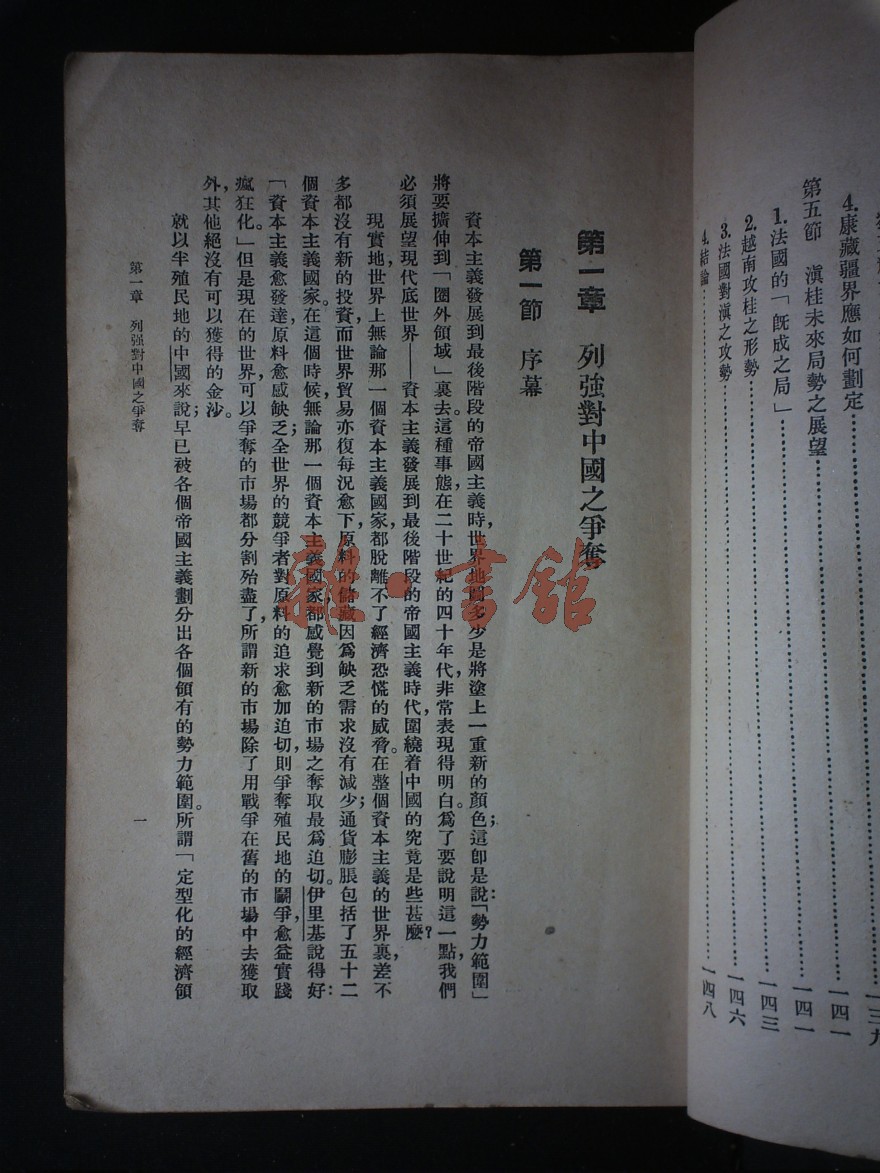 4.康藏疆界應如何劃定……………一三九
第五節 滇桂未來局勢之展望……………一四一
1.法國的「旣成之局」……………一四一
2.越南攻桂之形勢……………一四三
3.法國對滇之攻勢……………一四六
4.結論……………一四八
第一章 列強對中國之爭奪
第一節 序幕
資本主義發展到最後階段的帝國主義時，世界地圖多少是將塗上一重新的顏色；這卽是說：「勢力範圍」
將要擴伸到「圈外領域」裏去。這種事態，在二十世紀的四十年代，非常表現得明白。爲了要說明這一點，我們
必須展望現代底世界——資本主義發展到最後階段的帝國主義時代，圍繞着中國的究竟是些甚麼？
現實地，世界上無論那一個資本主義國家，都脫離不了經濟恐慌的威脅。在整個資本主義的世界裏，差不
多都沒有新的投資，而世界貿易亦復每況愈下，原料的儲藏因爲缺乏需求沒有減少；通貨膨脹包括了五十二
個資本主義國家。在這個時候，無論那一個資本主義國家，都感覺到新的市場之奪取最爲迫切。伊里基說得好：
「資本主義愈發達，原料愈感缺乏；全世界的競爭者對原料的追求愈加迫切，則爭奪殖民地的鬭爭，愈益實踐
瘋狂化。」但是現在的世界，可以爭奪的市場都分割殆盡了，所謂新的市場除了用戰爭在舊的市場中去獲取
外，其他絕沒有可以獲得的金沙。
就以半殖民地的中國來說；早已被各個帝國主義劃分出各個領有的勢力範圍。所謂「定型化的經濟領
第一章 列強對中國之爭奪
一
雜·書館